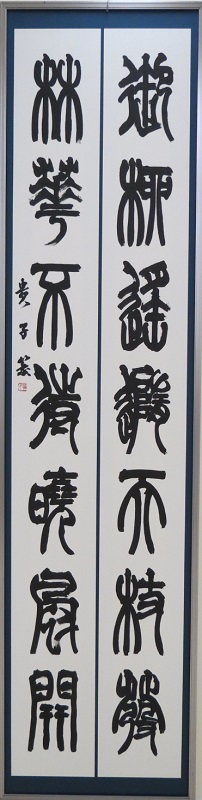 御柳遙隨天杖發
林華不待曉晨開
貴子篆